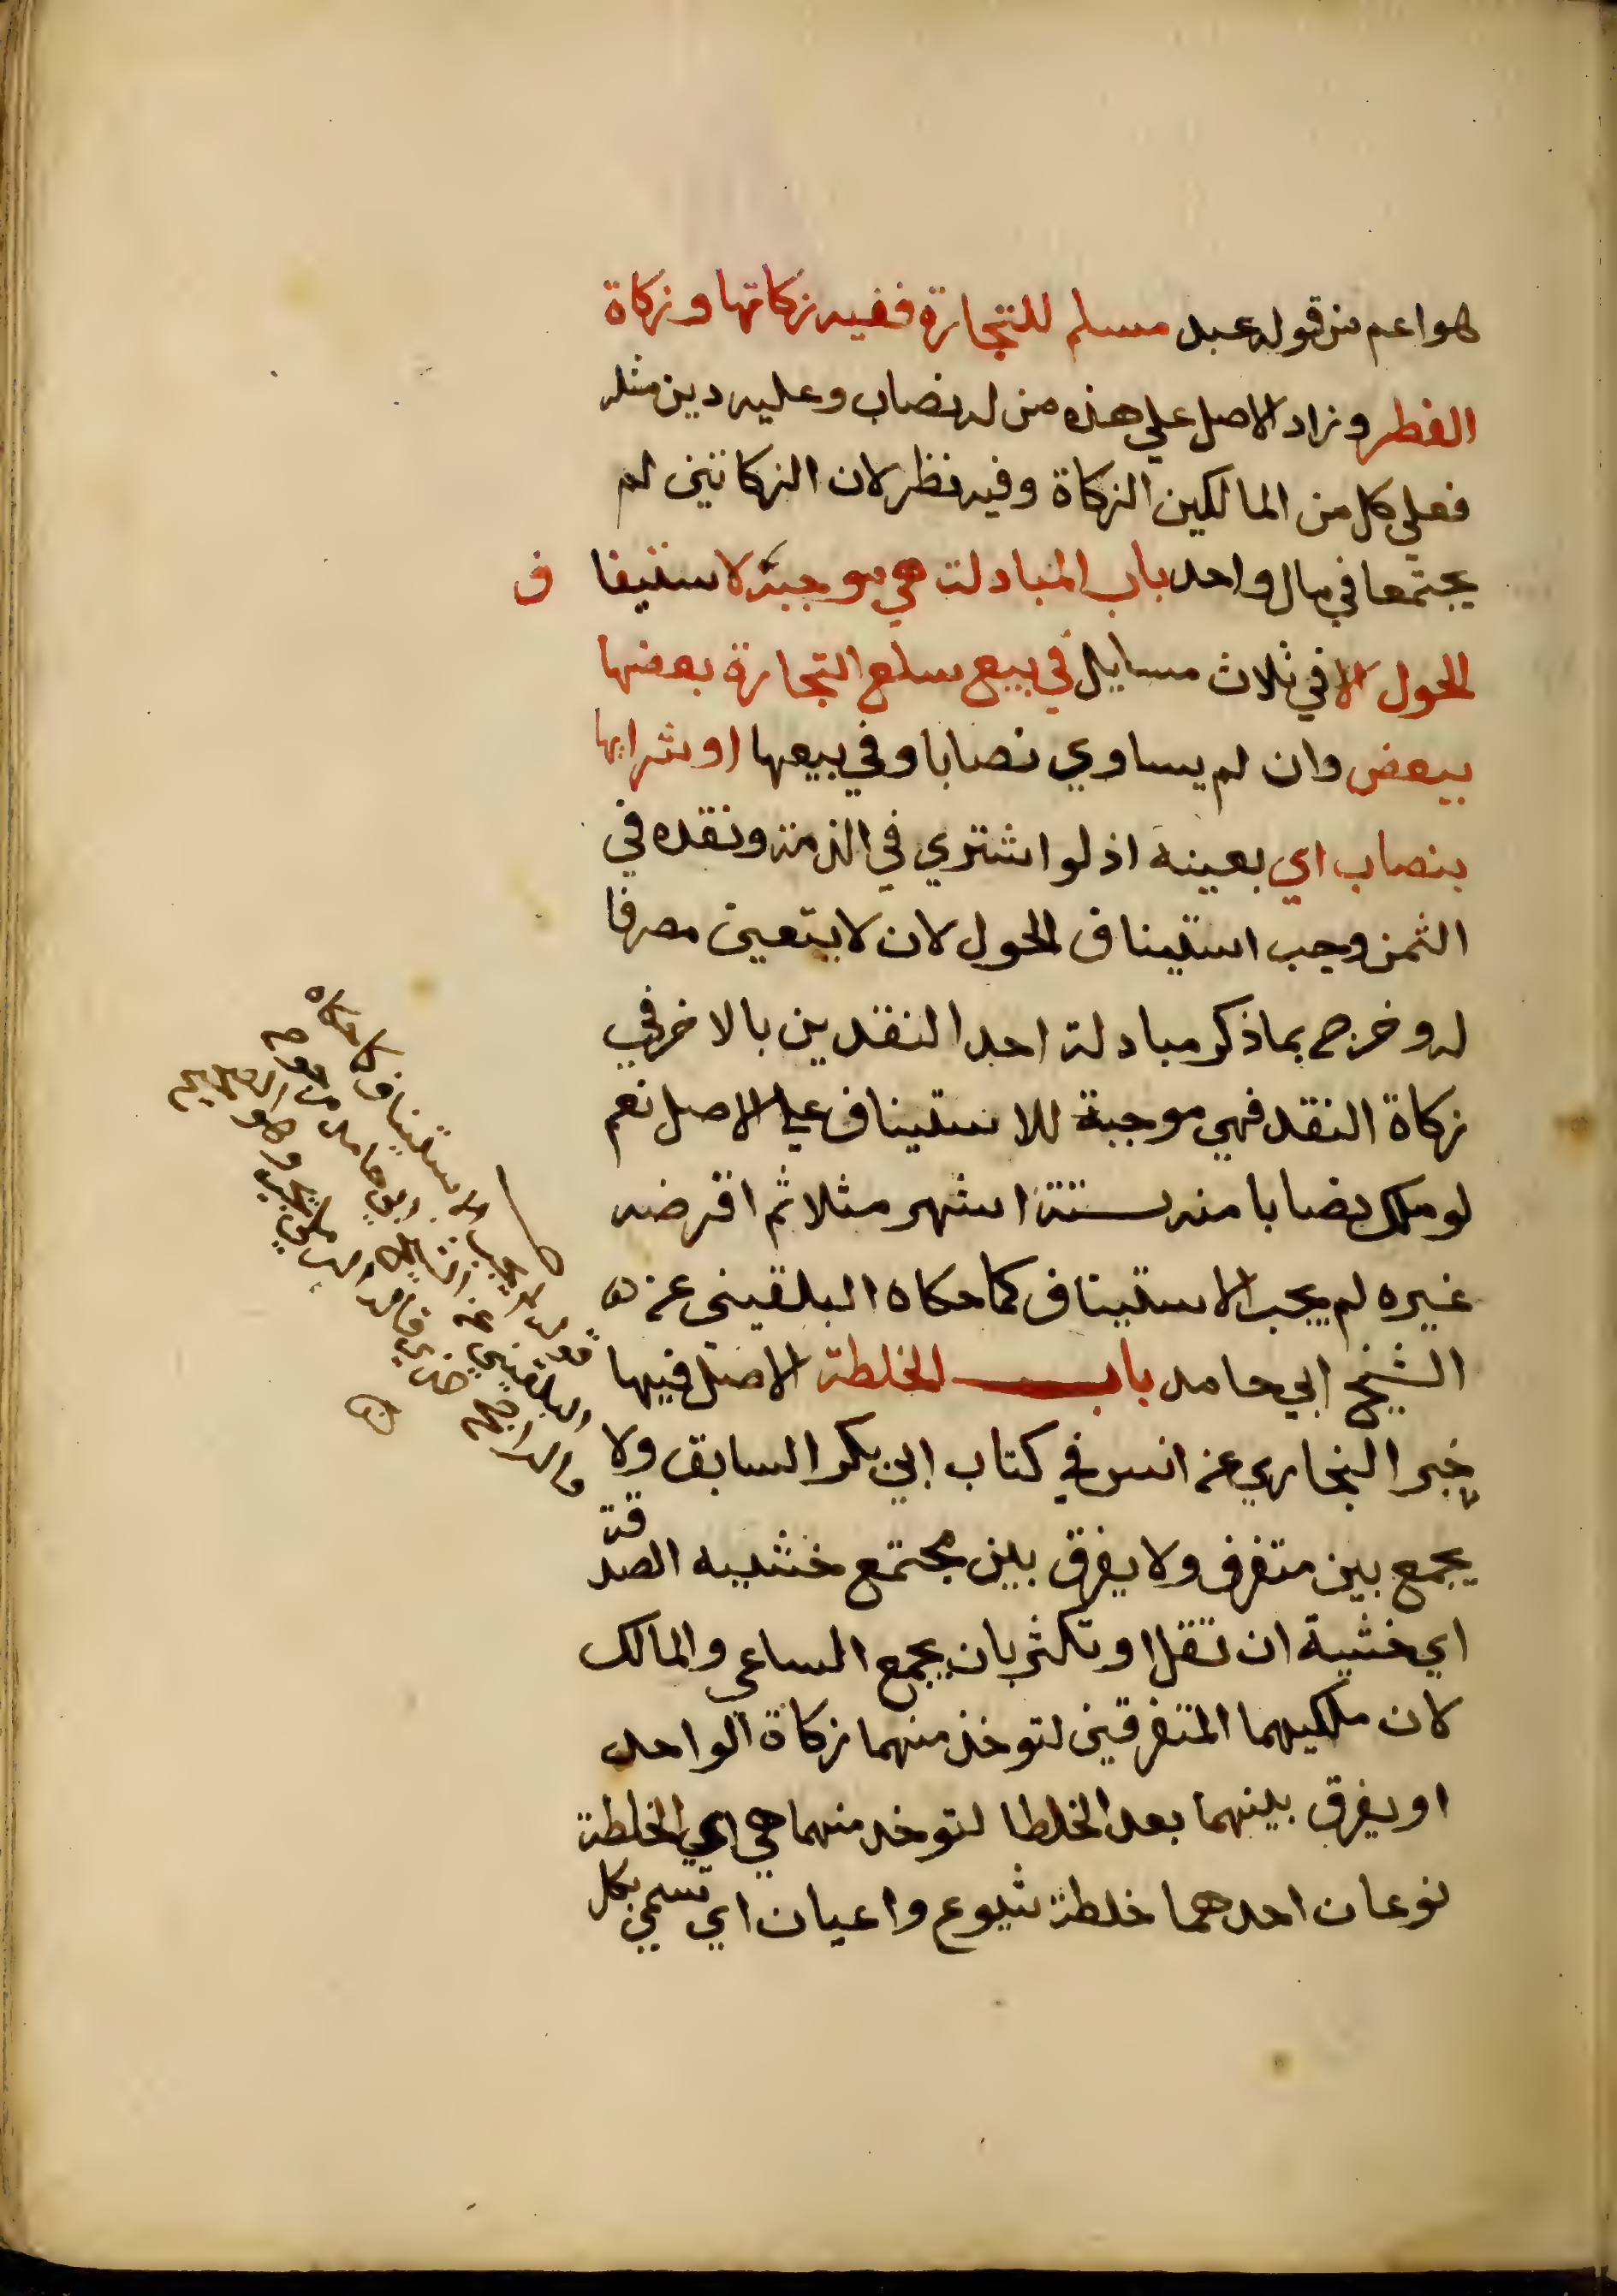 هو اعم من قوله عبد مسلم للتجارة ففيه زكاتها وزكاة
الفطر وزاد الاصل علي هذه من له نصاب وعليه دين مثله
فعلي كل من المالكين الزكاة وفيه نظر لان الزكاتين لم
يجتمعا في مال واحد باب المبادلة هي موجبة لاستيفا ف
الحول الا في ثلاث مسايل في بيع سلع التجارة بعضها
ببعض وان لم يساوي نصابا وفي بيعها او شرايها
بنصاب اي بعينه اذ لو اشتري في الذمة ونقده في
الثمن وجب استيناف الحول لان لا يتعين مصرفا
له وخرج بما ذكر مبادلة احد النقدين بالاخر في
زكاة النقد فهي موجبة للاستيناف علي الاصل نعم
لو ملك نصابا منه ستة اشهر مثلا ثم اقرضه
غيره لم يجب الاستيناف كما حكاه البلقيني عن
الشيخ ابي حامد باب الخلطة الاصل فيها
خبر البخاري عن انس في كتاب ابي بكر السابق ولا
يجمع بين متفرق ولا يفرق بين مجتمع خشيه الصدقة
اي خشية ان تقل او تكثر بان يجمع الساعي والمالك
لان ملكيهما المتفرقين لتوخذ منهما زكاة الواحد
او يفرق بينهما بعد الخلطا لتوخد منهما هي اي الخلطة
نوعان احدهما خلطة شيوع واعيان اي تسمي بكل
قوله لم يجب الاستيناف كما حكاه
البلقيني عن الشيخ ابي حامد